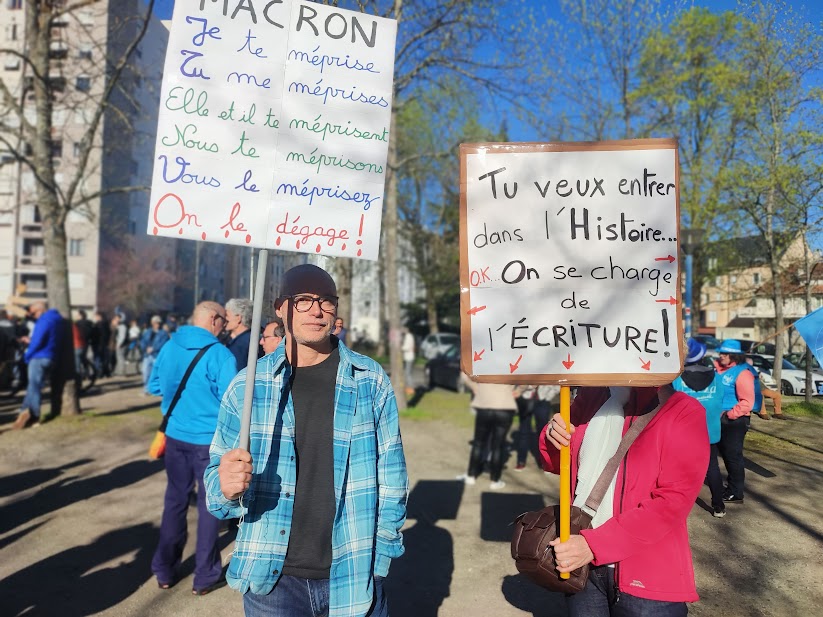 MACRON
Je te méprise
Tu me méprises
Elle et il te méprisent
Nous te méprisons
Vous le méprisez
On le dégage !
Tu veux entrer
dans l'Histoire...
O.K... On se charge
de
l'ÉCRITURE!